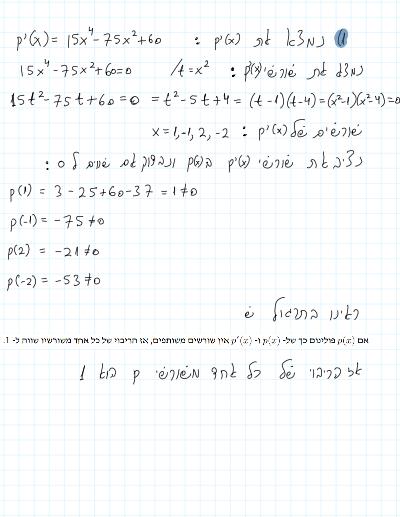 נמצא את p'(x) : p'(x) = 15x⁴ - 75x² + 60
נמצא את שורשי p'(x) : 15x⁴ - 75x² + 60 = 0 /t = x²
15t² - 75t + 60 = 0 = t² - 5t + 4 = (t-1)(t-4) = (x²-1)(x²-4) = 0
שורשים של p'(x) : x = 1, -1, 2, -2
נציב את שורשי p'(x) ב p(x) ונבדוק אם שווים ל 0 :
p(1) = 3 - 25 + 60 - 37 = 1 ≠ 0
p(-1) = -75 ≠ 0
p(2) = -21 ≠ 0
p(-2) = -53 ≠ 0
ראינו בתרגול ש
אם p(x) פולינום כך של- p(x) ו- p'(x) אין שורשים משותפים, אז הריבוי של כל אחד משורשיו שווה ל- 1.
אז הריבוי של כל אחד משורשי p הוא 1